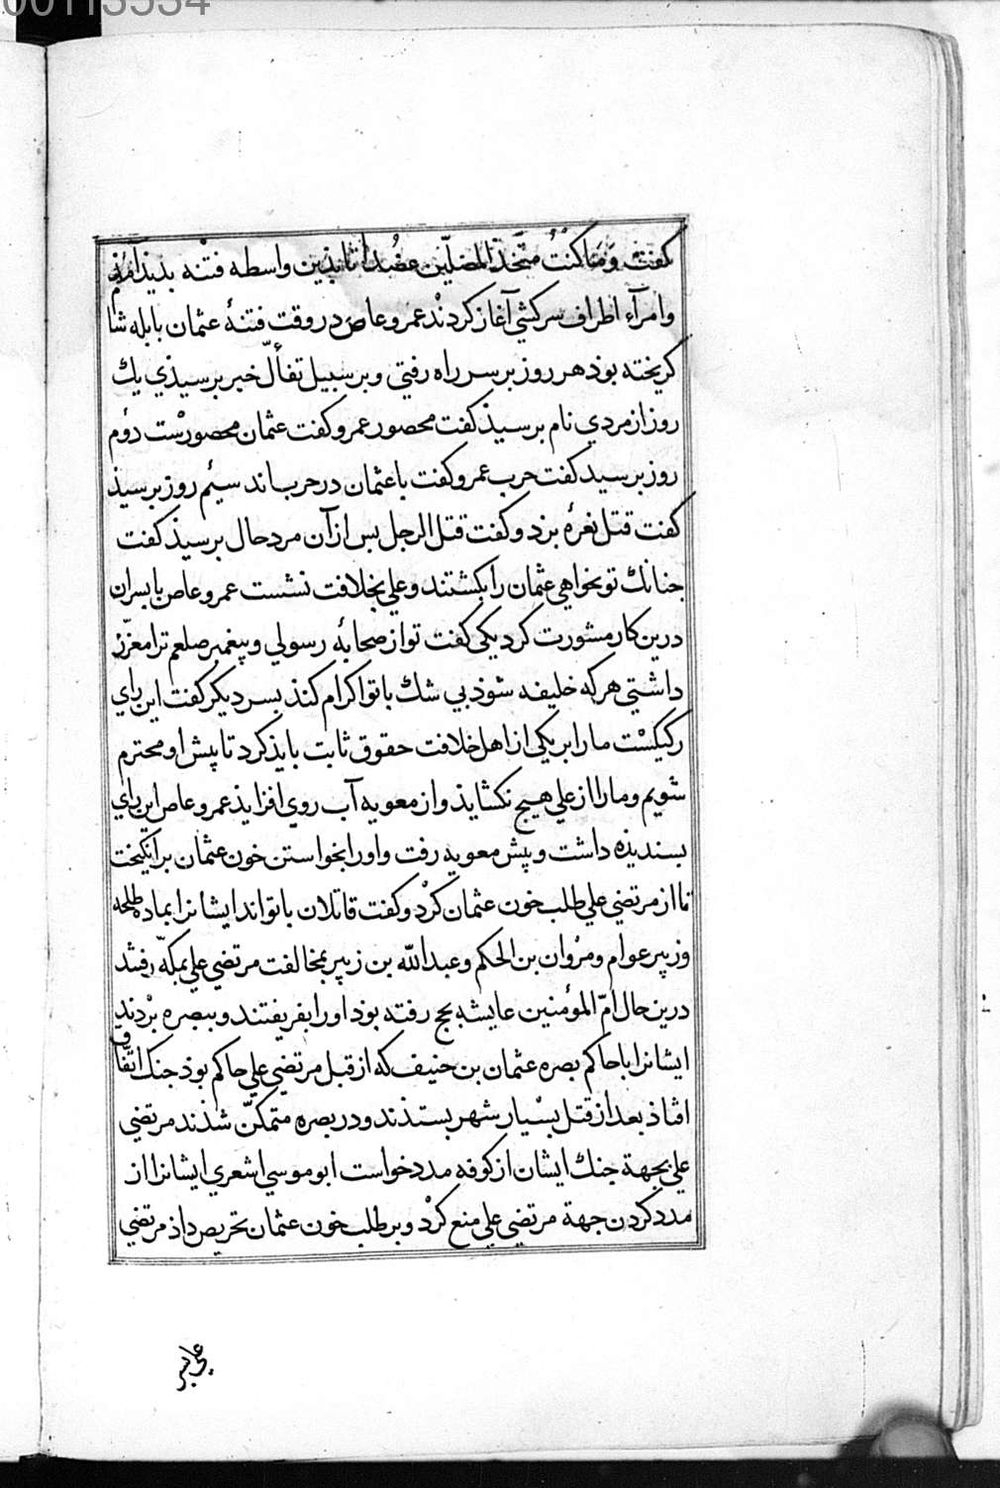 00113534
كفت وَمَا كُنْتُ مُتَّخِذَ المُضلّين عضُدًا تا بذين واسطه فتنه بديذ آمذ
وامرآء اطراف سركشي آغاز كردند عمرو عاص در وقت فتنهٔ عثمان بابله شا
كريخته بوذ هر روز بر سر راه رفتي و بر سبيل تفألّ خبر برسيذي يك
روز از مردي نام برسيذ كفت محصور عمرو كفت عثمان محصورست دوٌم
روز برسيد كفت حرب عمرو كفت با عثمان در حرب‌اند سيٌم روز برسيذ
كفت قتل نعرهٔ بزد و كفت قتل الرجل بس از آن مرد حال برسيذ كفت
جنانك تو نخواهي عثمان را بكشتند و علي بخلافت نشست عمرو عاص با بسران
درين كار مشورت كرد يكي كفت تو از صحابهٔ رسولي و پيغمبر صلعم ترا معزّز
داشتي هر كه خليفه شوذ بي شك با تو اكرام كند بسر ديكر كفت اين راي
ركيكست ما را بر يكي از اهل خلافت حقوق ثابت بايذ كرد تا پيش او محترم
شويم و ما را از علي هيج نكشايذ و از معويه آب روي افزايذ عمرو عاص اين راي
بسنديذه داشت و پيش معويه رفت و او را بخواستن خون عثمان بر انكيخت
تا از مرتضي علي طلب خون عثمان كرْد و كفت قاتلان با تواند ايشانرا بما ده طلحه
و زبير عوام و مرْوان بن الحكم و عبد الله بن زبير بمخالفت مرتضي علي بمكّه رفتند
درين حال امّ المؤمنين عايشه بحج رفته بوذ او را بفريفتند و ببصره برْدند
ايشانرا با حاكم بصره عثمان بن حنيف كه از قبل مرتضي علي حاكم بوذ جنك اتفّاق
افتاذ بعد از قتل بسْيار شهر بستذند و در بصره متمكنّ شذند مرتضي
علي بجهة جنك ايشان از كوفه مدد خواست ابو موسي اشعري ايشانرا از
مدد كردن جهة مرتضي علي منع كرْد و بر طلب خون عثمان تحريص داذ مرتضي
علي بسر